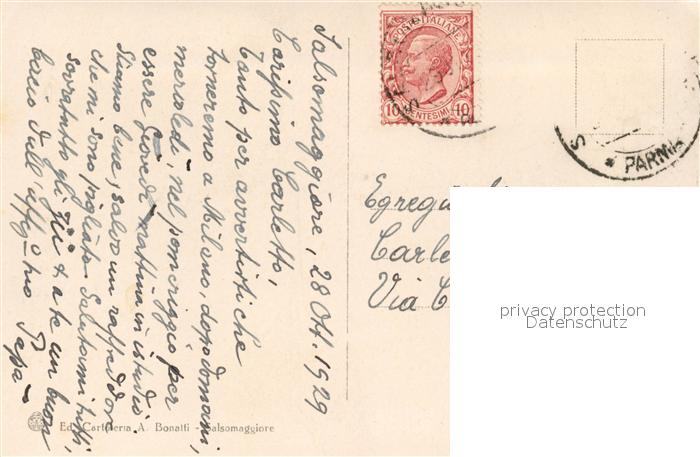 Salsomaggiore, 28 Ott. 1929
Carissimo Carletto,
Tanto per avvertirti che
torneremo a Milano, dopodomani,
mercoledì, nel pomeriggio per
essere Giovedì mattina in istudio.
Stiamo bene, salvo un raffreddor
che mi sono pigliato. Salutami tutti,
sovratutto gli zii & a te un buon
bacio dall' aff/mo tuo Papà
POSTE ITALIANE
10 CENTESIMI 10
PARMA
Egregio
Via C
privacy protection
Datenschutz
Ed. Cartoleria A. Bonatti - Salsomaggiore